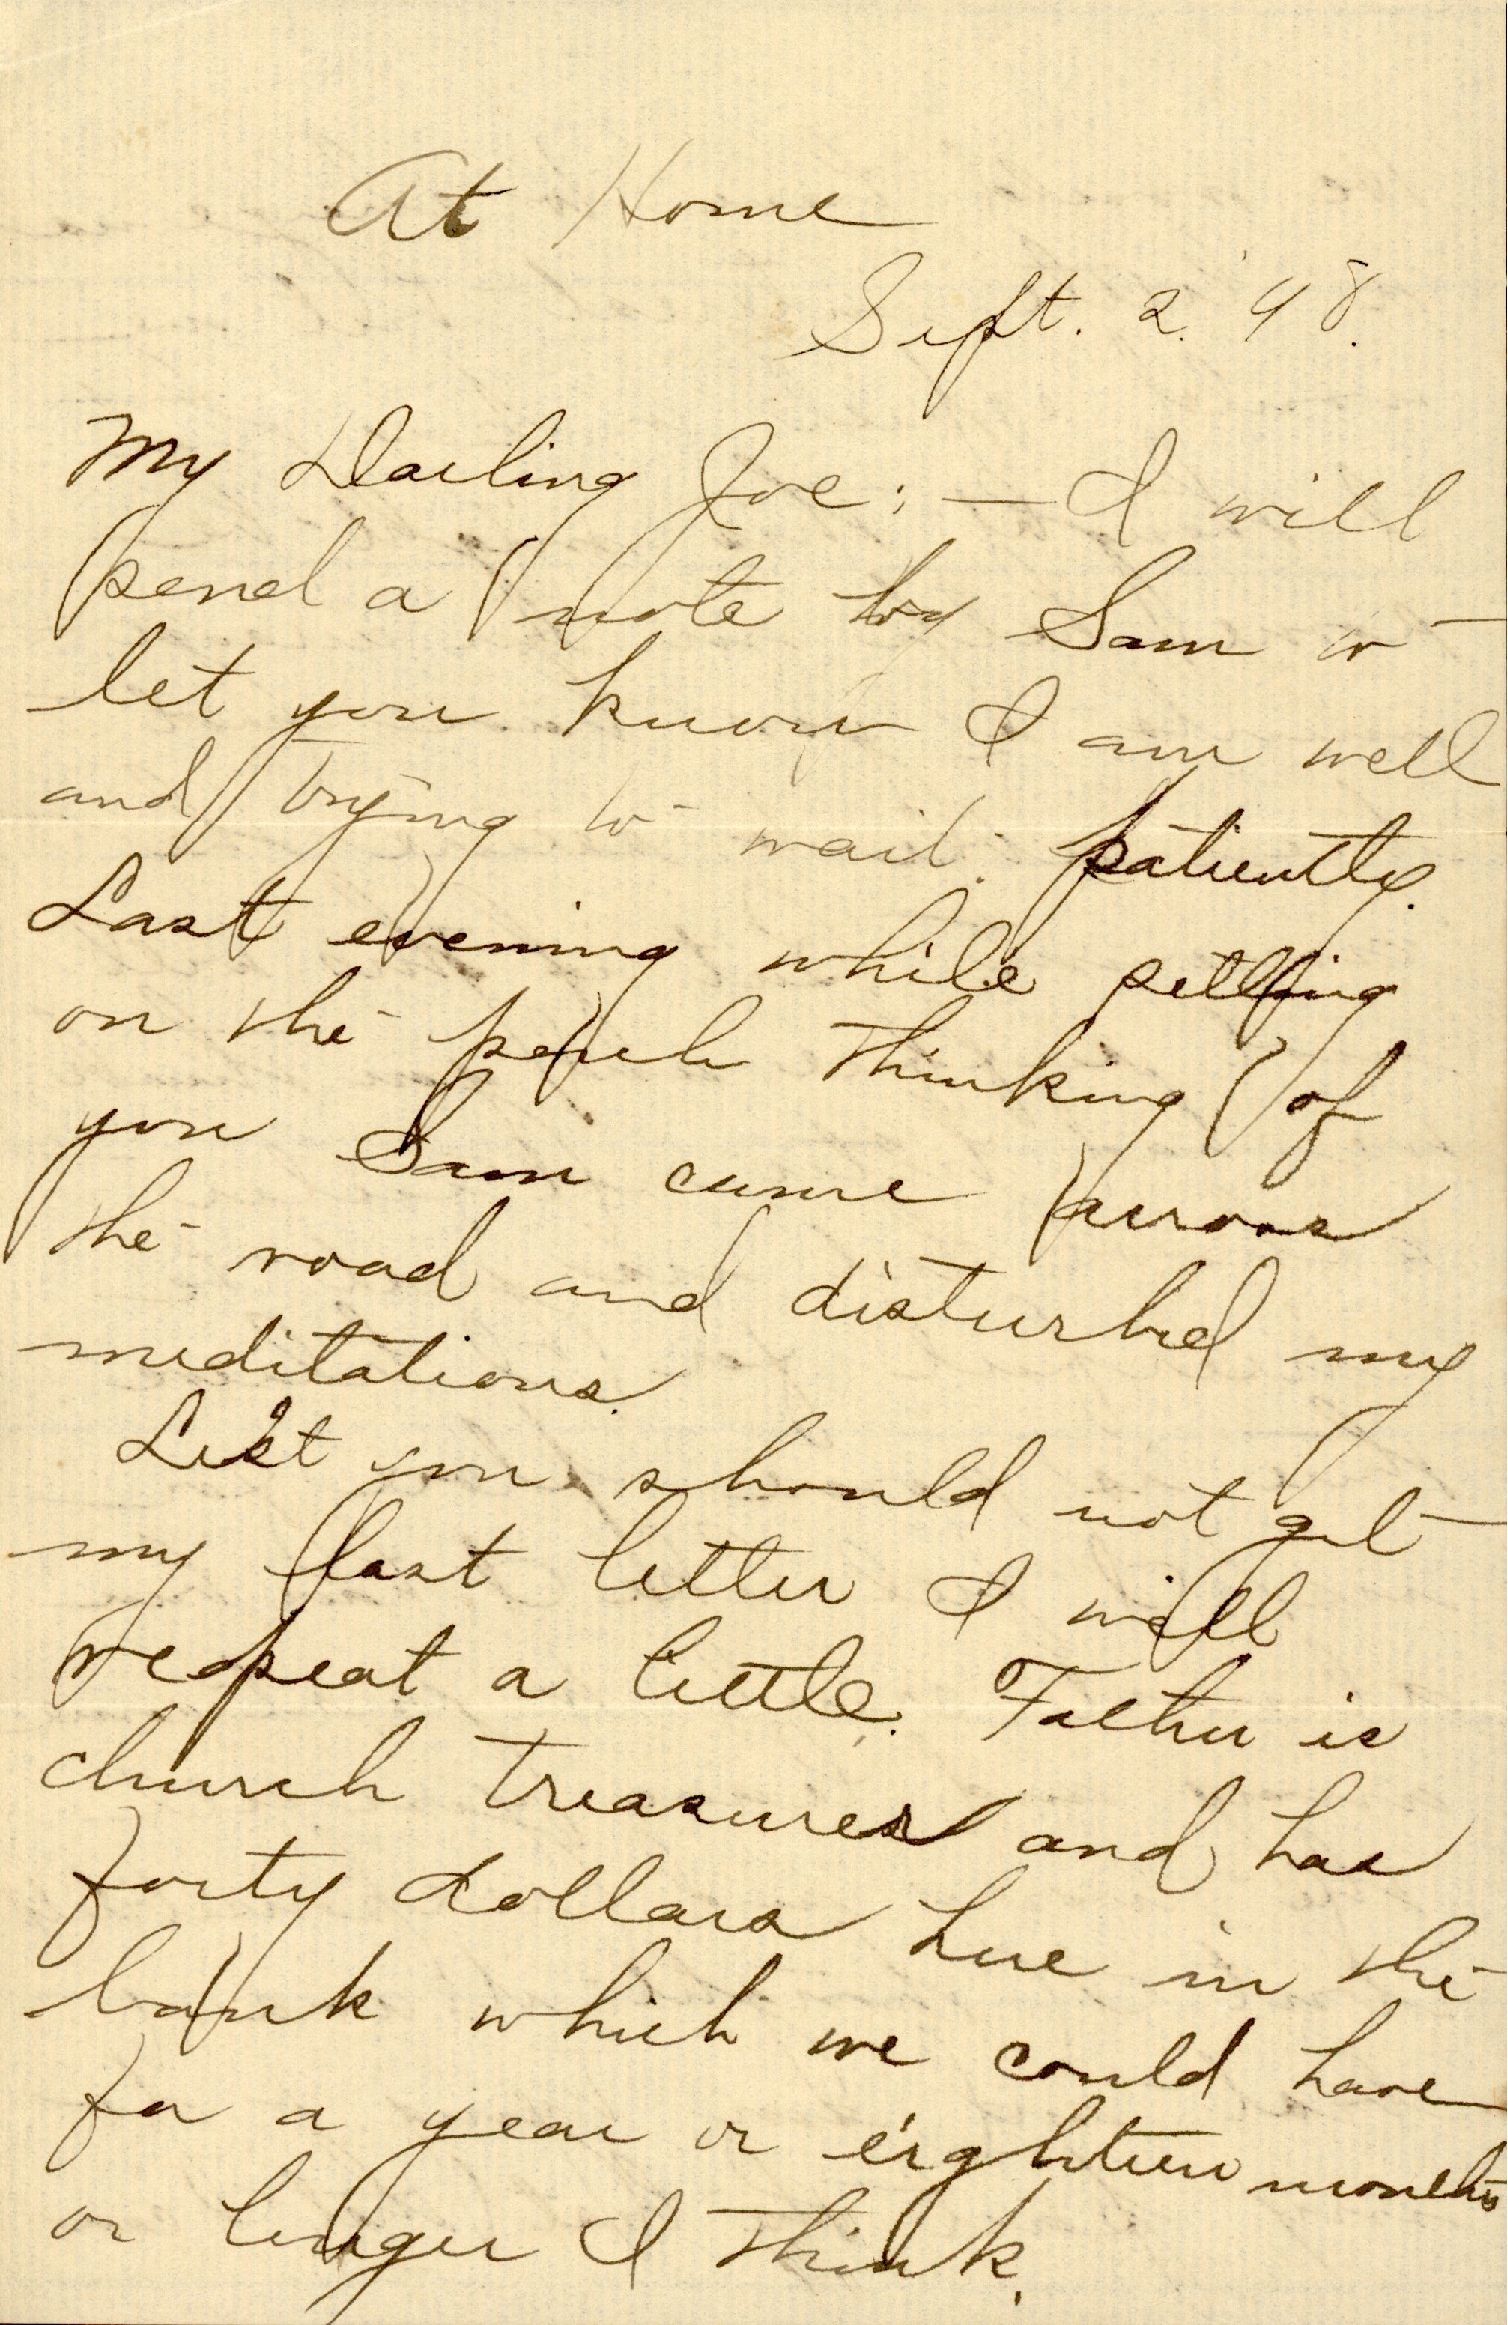 At Home
Sept. 2. '98.
My Darling Joe; — I will
send a note by Sam to
let you know I am well
and trying to wait patiently.
Last evening while sitting
on the porch thinking of
you Sam came across
the road and disturbed my
meditations.
Lest you should not get
my last letter I will
repeat a little. Father is
church treasurer and has
forty dollars here in the
bank which we could have
for a year or eighteen months
or longer I think.